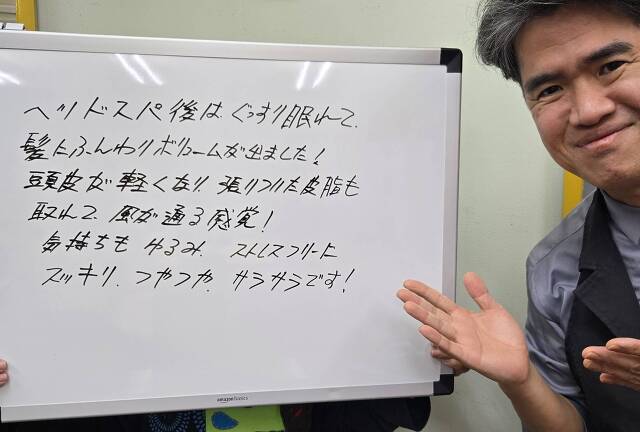 ヘッドスパ後は ぐっすり眠れて、
髪にふんわりボリュームが出ました!
頭皮が軽くなり 張りついた皮脂も
取れて 風が通る感覚!
気持ちも ゆるみ ストレスフリーに
スッキリ、つやつや、サラサラです!
amazonbasics